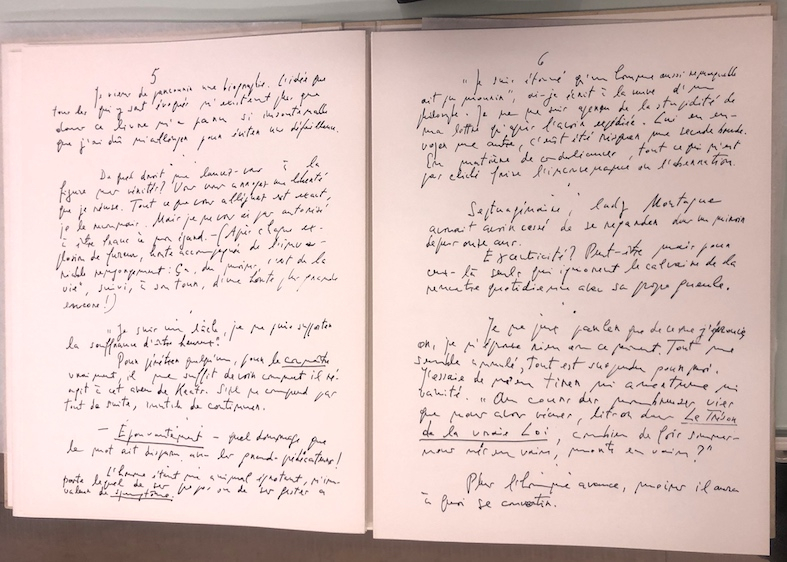 5
Je viens de parcourir une biographie. L'idée que
tous les qui y sont évoqués n'existent plus que
dans ce livre m'a paru si insoutenable
que j'ai dû m'allonger pour éviter une défaillance.
De quel droit me lancez-vous à la
figure mes vérités? Vous vous arrogez une liberté
que je refuse. Tout ce que vous alléguez est exact,
je le reconnais. Mais je ne vous ai pas autorisé
à être franc à mon égard. — (Après chaque ex-
plosion de fureur, honte accompagnée de l'inva-
riable rengorgement: Ça, du moins, c'est de la
vie", suivi, à son tour, d'une honte plus grande
encore!)
"Je suis un lâche, je ne puis supporter
la souffrance d'être heureux."
Pour pénétrer quelqu'un, pour le connaître
vraiment, il me suffit de voir comment il ré-
agit à cet aveu de Keats. S'il ne comprend pas
tout de suite, inutile de continuer.
— Épouvantement — quel dommage que
le mot ait disparu avec les grands prédicateurs!
L'homme étant un animal égrotant, n'im-
porte lequel de ses propos ou de ses gestes a
valeur de symptôme.
6
"Je suis étonné qu'un homme aussi remarquable
ait pu mourir", ai-je écrit à la veuve d'un
philosophe. Je ne me suis aperçu de la stupidité de
ma lettre qu'après l'avoir expédiée. Lui en en-
voyer une autre, c'eût été risquer une seconde bourde.
En matière de condoléances, tout ce qui n'est
pas cliché frise l'inconvenance ou l'aberration.
Septuagénaire, lady Montague
avouait avoir cessé de se regarder dans un miroir
depuis onze ans.
Excentricité? Peut-être, mais pour
ceux-là seuls qui ignorent le calvaire de la
rencontre quotidienne avec sa propre gueule.
Je ne puis parler que de ce que j'éprouve;
or, je n'éprouve rien en ce moment. Tout me
semble annulé, tout est suspendu pour moi.
J'essaie de n'en tirer ni amertume ni
vanité. "Au cours des nombreuses vies
que nous avons vécues, lit-on dans Le Trésor
de la vraie Loi, combien de fois sommes-
nous nés en vain, morts en vain?"
Plus l'homme avance, moins il aura
à quoi se convertir.